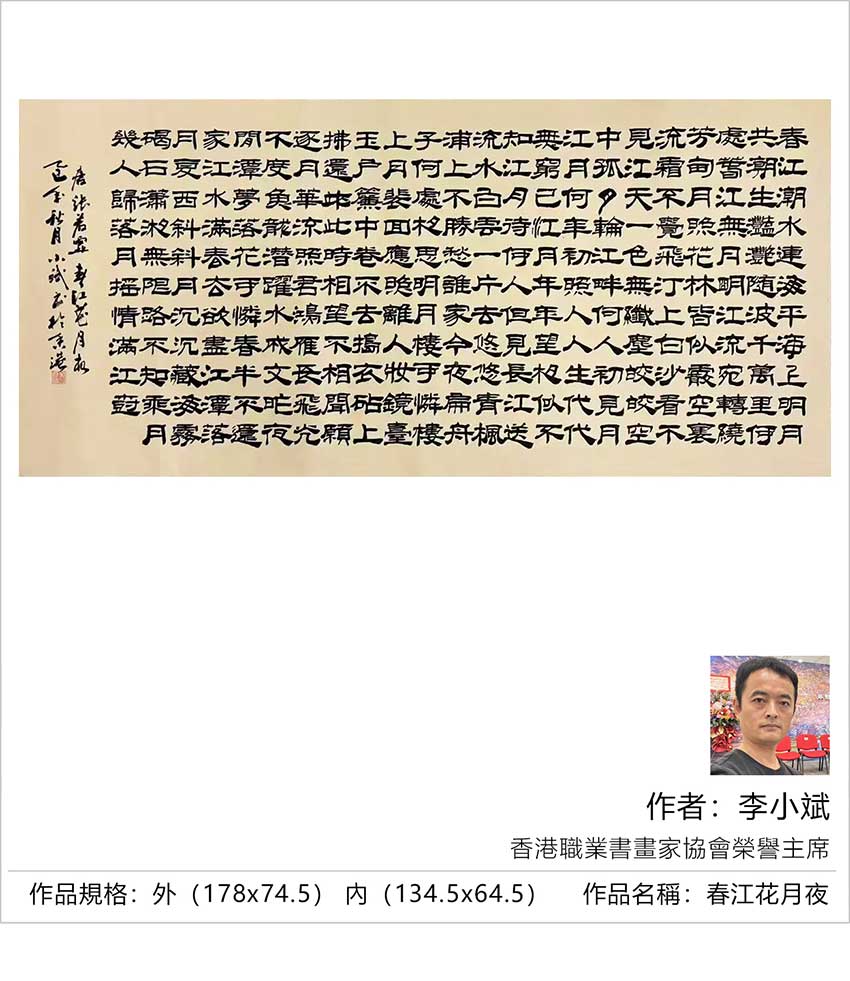 春江潮水連海平海上明月
共潮生灩灩随波千萬里何
處春江無月明江流宛轉繞
芳甸月照花林皆似霰空裏
流霜不覺飛汀上白沙看不
見江天一色無纖塵皎皎空
中孤月輪江畔何人初見月
江月何年初照人人生代代
無窮已江月年年望相似不
知江月待何人但見長江送
流水白雲一片去悠悠青楓
浦上不勝愁誰家今夜扁舟
子何處相思明月樓可憐樓
上月裴回應照離人妝鏡臺
玉戶簾中卷不去搗衣砧上
拂還來此時相望不相聞願
逐月華流照君鴻雁長飛光
不度魚龍潛躍水成文昨夜
閒潭夢落花可憐春半不還
家江水滿春去欲盡江潭落
月复西斜斜月沉沉藏海霧
碣石瀟湘無限路不知乘月
幾人歸落月搖情滿江樹
唐 張若虛 春江花月夜
秋月小斌書於香港
作者：李小斌
香港職業書畫家協會榮譽主席
作品規格：外（178x74.5） 內（134.5x64.5） 作品名稱：春江花月夜